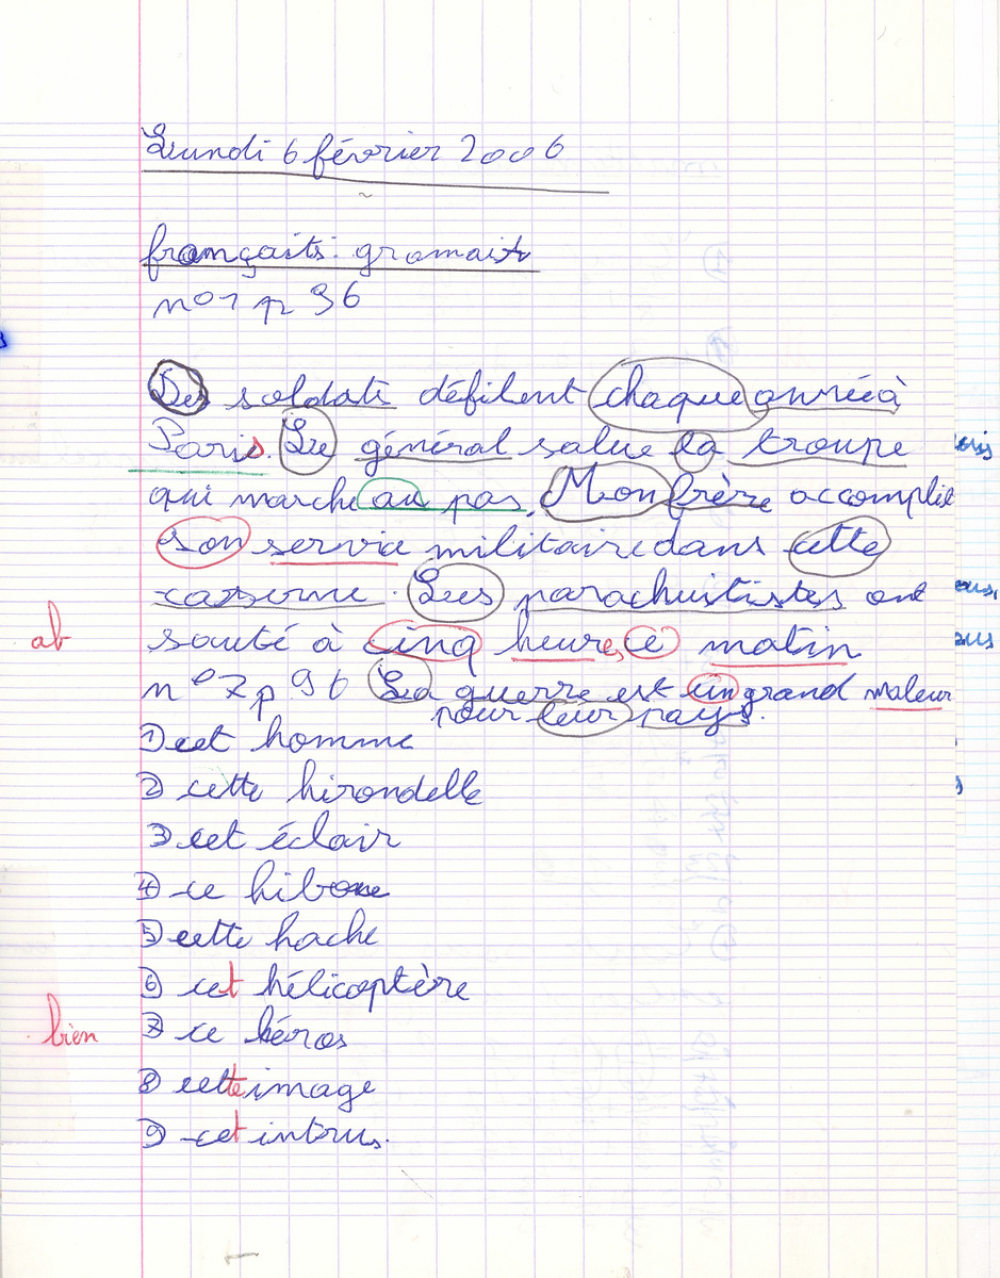 Lundi 6 février 2006
françaits: gramair
n°1 p 96
Des soldats défilent chaque année à
Paris. Le général salue la troupe
qui marche au pas. Mon frère accomplie
son service militaire dans cette
caserne. Les parachuitistes ont
ab
sauté à cinq heures, ce matin
n°2 p 96 La guerre est un grand maleur
pour leur pays.
1) cet homme
2) cette hirondelle
3) cet éclair
4) ce hibou
5) cette hache
6) cet hélicoptère
bien
7) ce héros
8) cette image
9) cet intrus.